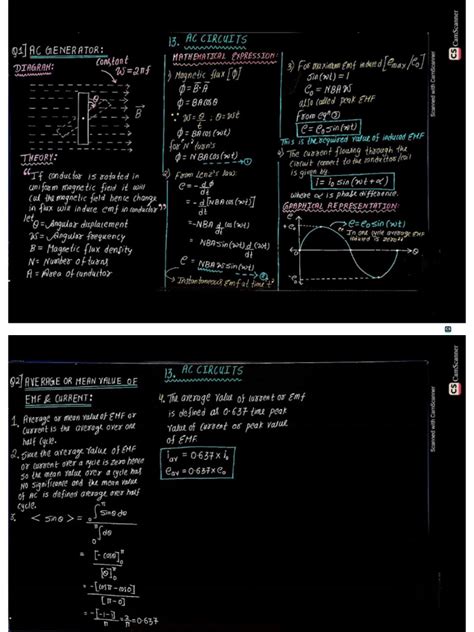 13. AC CIRCUITS
Q1] AC GENERATOR:
DIAGRAM:
constant
W = 2πf
θ
B
THEORY:
"If conductor is rotated in
uniform magnetic field it will
cut the magnetic field hence change
in flux will induce emf in conductor"
let
θ = Angular displacement
W = Angular frequency
B = Magnetic flux density
N = Number of turns
A = Area of conductor
MATHEMATICAL EXPRESSION:
1) Magnetic flux [φ]
φ = B·A
φ = BA cos θ
∵ W = θ/t , θ = Wt
φ = BA cos(wt)
for 'N' turns
φ = NBA cos(wt) → ①
2) From Lenz's law:
e = -d/dt φ
= -d/dt [NBA cos(wt)]
= -NBA d/dt cos(wt)
= NBA sin(wt) d/dt (wt)
e = NBAW sin(wt) → ②
→ Instantaneous Emf at time 't'
3) For maximum emf induced [e max/e₀]
sin(wt) = 1
e₀ = NBAW
also called peak EMF
from eqⁿ ②
e = e₀ sin(wt)
This is the required value of induced EMF
4) The current flowing through the
circuit connect to the conductor/coil
is given by
i = i₀ sin(wt + α)
where α is phase diff.
GRAPHICAL REPRESENTATION:
e
e₀
e = e₀ sin(wt)
In one cycle average emf
induced is zero
0
θ
-e₀
Scanned with CamScanner
CS CamScanner
13. AC CIRCUITS
Q2] AVERAGE OR MEAN VALUE OF
EMF & CURRENT:
1. Average or mean value of EMF or
Current is the average over one
half cycle.
2. Since the average value of EMF
or current over a cycle is zero hence
so the mean value over a cycle has
no significance and the mean value
of AC is defined average over half
cycle.
3. < sin θ > = ₀∫^π sin θ dθ / ₀∫^π dθ
= [-cos θ]₀^π / [θ]₀^π
= -[cos π - cos 0] / [π - 0]
= -[-1-1] / π = 2/π = 0.637
4. The average value of current or emf
is defined as 0.637 time peak
value of current or peak value
of EMF.
i av = 0.637 × i₀
e av = 0.637 × e₀
Scanned with CamScanner
CS CamScanner